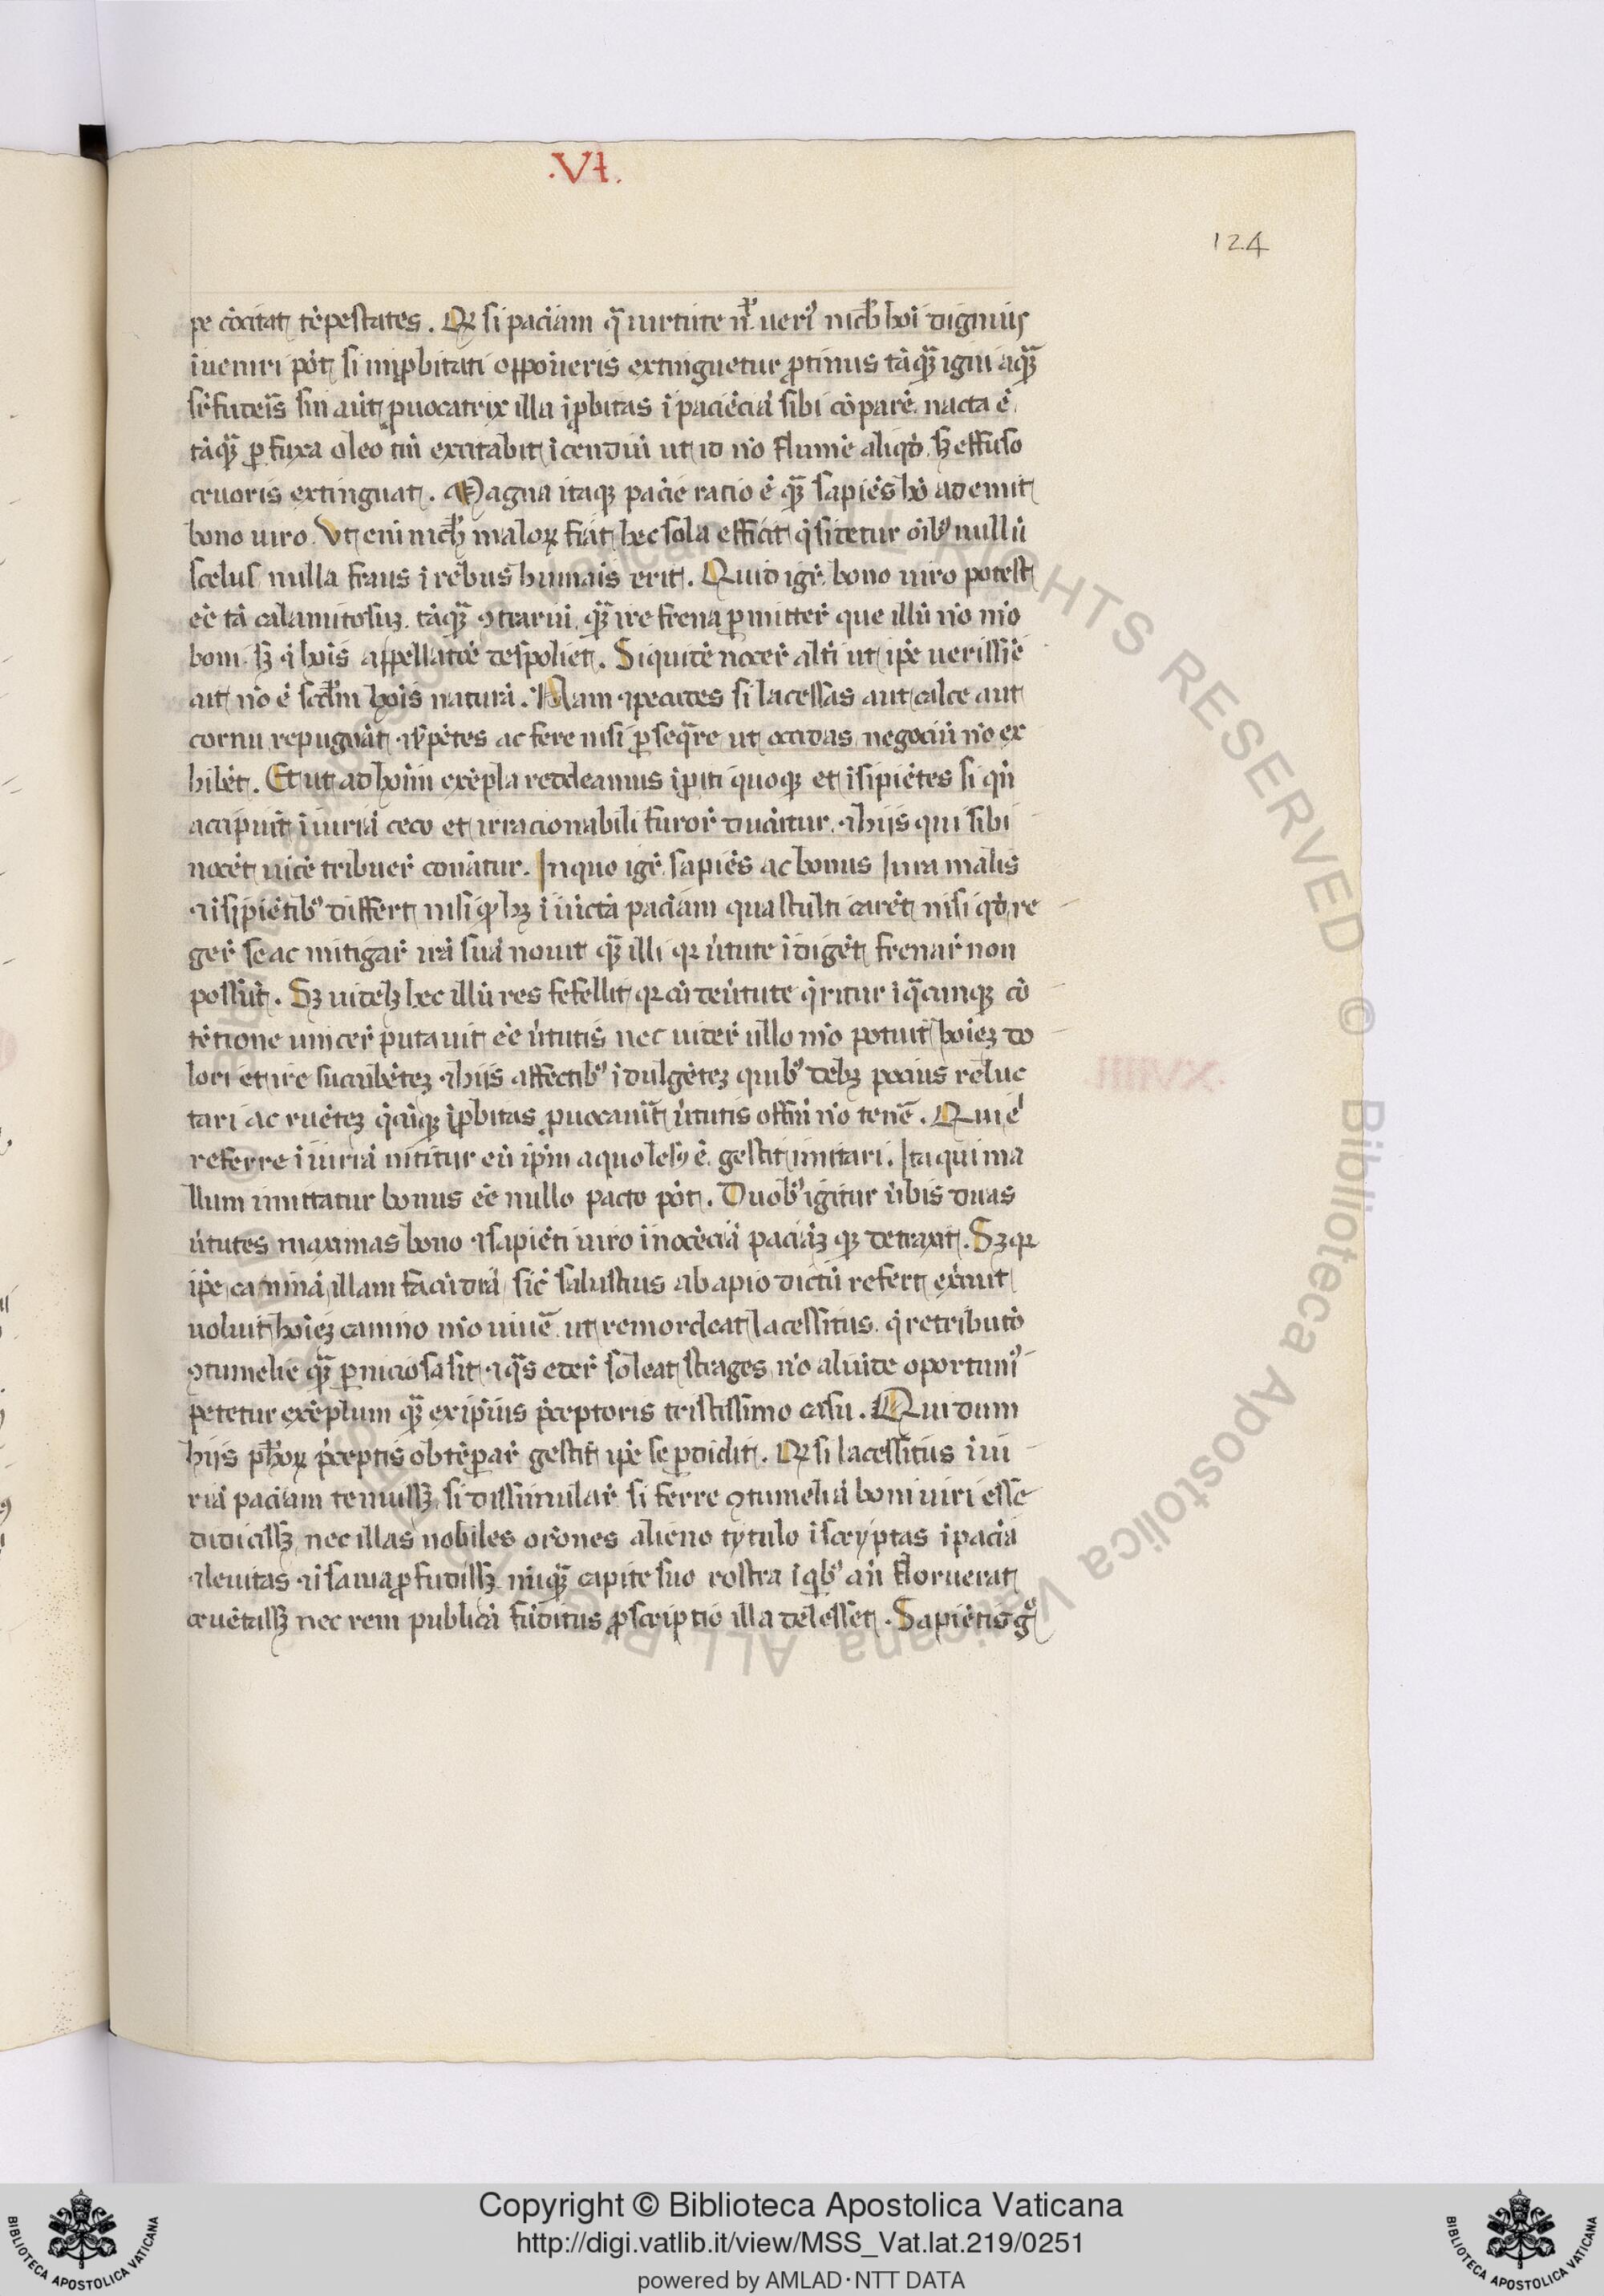 .VI.
124
pe cōcitat tēpestates. Qꝛ si paciam q̄ uirtute nͥ ueriꝰ nichͥ hoī dignius
iueniri pōt si iniꝓbitati opponeris extinguetur ꝓtinus tāqꝫ igni aqꝫ
suꝑfuderis sin aūt ꝓuocatrix illa īꝓbitas īpaciēciā sibi cōparē nacta ē
tāqꝫ ꝑfuxa oleo tm̄ excitabit īcendiū ut id nō flumē aliqd̄ sꝫ effusio
cruoris extinguat. Magna itaqꝫ paciē ratio ē qꝫ sapiēs hō ademit
bono uiro. Vt eni nichͥ maloꝝ fiat hec sola efficit q̄ si detur oībꝰ nullū
scelus nulla fraus ī rebus humaīs erit. Quid igr̄ bono uiro potest
eē tā calamitosuꝫ tāqꝫ ꝯtrariū qꝫ ire frena ꝑmitterē que illū nō mō
boni sꝫ ⁊ hoīs appellatōe despoliet. Siquidē nocerē altī ut ip̄e uerissīe
ait nō ē scd̄m hoīs naturā. Nam ⁊ pecudes si lacessas aut calce aut
cornu repugnāt ⁊ s̄pētes ac fere nisi ꝑseqͣre ut occidas negociū nō ex
hibēt. Et ut ad hoīm exēpla reddeamus īꝑiti quoqꝫ et īsipiētes si qn̄
accipiūt iniuriā ceco et irracionabili furorē ducūtur ⁊ hijs qui sibi
nocēt uicē tribuerē conātur. In quo igr̄ sapiēs ac bonus uir a malis
⁊ īsipiētibꝰ differt nisi qͥ hꝫ īuictā paciam qua stulti carēt nisi qd̄ re
gerē se ac mitigarē irā suā nouit qꝫ illi qꝛ uͥtute īdigēt frenarē non
possūt. Sꝫ uidelꝫ hec illū res fefellit qꝛ cū de uͥtute qͥritur ī qͣcunqꝫ cō
tētione uincerē putauit eē uͥtutis nec uiderē ullo mō potuit hoīeꝫ do
lori et ire sucūbēteꝫ ⁊ hijs affectibꝰ īdulgēteꝫ quibꝰ debꝫ pocius reluc
tari ac ruēteꝫ qͣcūqꝫ īꝓbitas ꝓuocauīt uͥtutis offm̄ nō tenē. Qui ē
referre iniuriā nititur eū ip̄m a quo lesꝰ ē gestit imitari. Ita qui ma
llum imittatur bonus eē nullo pacto pōt. Duobꝰ igitur uͥbis duas
uͥtutes maximas bono ⁊ sapiēti uiro īnocēciā paciāꝫ qꝫ detraxit. Sꝫ qꝛ
ip̄e caninā illam facūdiā sic̄ salustius ab apio dictū refert exͨuit
uoluit hoīeꝫ canino mō uiuē ut remordeat lacessitus q̄ retributō
ꝯtumelie qꝫ ꝑniciosa sit ⁊ qͣs ederē soleat strages nō aliūde oportuniꝰ
petetur exēplum qꝫ ex ip̄ius p̄ceptoris tristissimo casu. Qui dum
hijs ph̄oꝝ p̄ceptis obtēꝑarē gestit ip̄e se ꝑdidit. Qꝛ si lacessitus iniu
riā paciam tenuissꝫ si dissimularē si ferre ꝯtumeliā boni uiri esse
didicissꝫ nec illas nobiles orōnes alieno tytulo īscryptas īpaciā
⁊ leuitas ⁊ īsania ꝓfudissꝫ nūqꝫ capite suo rostra ī qͥbꝰ an̄ floruerat
cruētassꝫ nec rem publicā fūditus ꝓscriptio illa delesset. Sapiētis gͦ
Copyright © Biblioteca Apostolica Vaticana
http://digi.vatlib.it/view/MSS_Vat.lat.219/0251
powered by AMLAD · NTT DATA